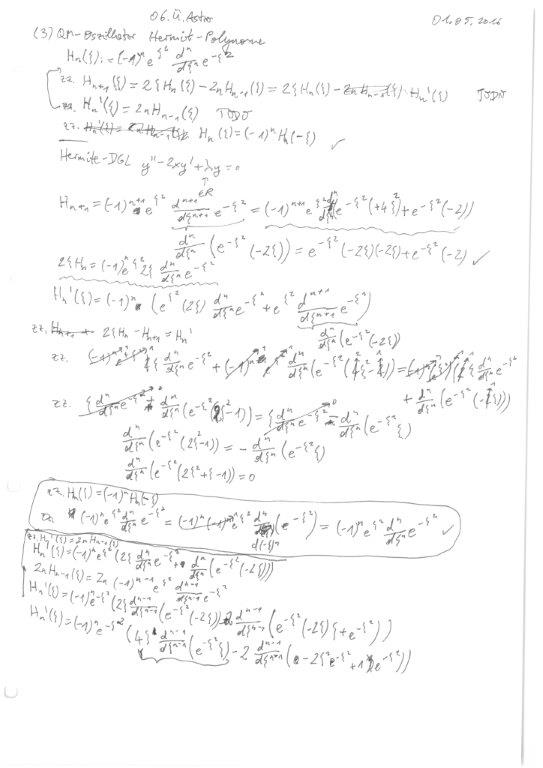 06. Ü. Astro 01.05.2016
(3) QM-Oszillator Hermit-Polynome
H_n(ξ) := (-1)^n e^{ξ²} d^n/dξ^n e^{-ξ²}
zz. H_{n+1}(ξ) = 2ξ H_n(ξ) - 2n H_{n-1}(ξ) = 2ξ H_n(ξ) - H_n'(ξ) TODO
zz. H_n'(ξ) = 2n H_{n-1}(ξ) TODO
zz. H_n(ξ) = (-1)^n H_n(-ξ) ✓
Hermite-DGL y'' - 2xy' + λy = 0
∈ℝ
H_{n+1} = (-1)^{n+1} e^{ξ²} d^{n+1}/dξ^{n+1} e^{-ξ²} = (-1)^{n+1} e^{ξ²} d^n/dξ^n (e^{-ξ²}(+4ξ²) + e^{-ξ²}(-2))
d^n/dξ^n (e^{-ξ²}(-2ξ)) = e^{-ξ²}(-2ξ)(-2ξ) + e^{-ξ²}(-2) ✓
2ξ H_n = (-1)^n e^{ξ²} 2ξ d^n/dξ^n e^{-ξ²}
H_n'(ξ) = (-1)^n (e^{ξ²}(2ξ) d^n/dξ^n e^{-ξ²} + e^{ξ²} d^{n+1}/dξ^{n+1} e^{-ξ²})
d^n/dξ^n (e^{-ξ²}(-2ξ))
zz. 2ξ H_n - H_{n+1} = H_n'
zz. ξ d^n/dξ^n e^{-ξ²} + d^n/dξ^n (e^{-ξ²}(2ξ²-1)) = ξ d^n/dξ^n e^{-ξ²} - d^n/dξ^n (e^{-ξ²} ξ)
d^n/dξ^n (e^{-ξ²}(2ξ²-1)) = - d^n/dξ^n (e^{-ξ²} ξ)
d^n/dξ^n (e^{-ξ²}(2ξ²+ξ-1)) = 0
zz. H_n(ξ) = (-1)^n H_n(-ξ)
zz. (-1)^n e^{ξ²} d^n/dξ^n e^{-ξ²} = (-1)^n (-1)^n e^{ξ²} d^n/d(-ξ)^n (e^{-ξ²}) = (-1)^n e^{ξ²} d^n/dξ^n e^{-ξ²} ✓
zz. H_n'(ξ) = 2n H_{n-1}(ξ)
H_n'(ξ) = (-1)^n e^{ξ²} (2ξ d^n/dξ^n e^{-ξ²} + d^n/dξ^n (e^{-ξ²}(-2ξ)))
2n H_{n-1}(ξ) = 2n (-1)^{n-1} e^{ξ²} d^{n-1}/dξ^{n-1} e^{-ξ²}
H_n'(ξ) = (-1)^n e^{-ξ²} (2ξ d^{n-1}/dξ^{n-1} (e^{-ξ²}(-2ξ)) - 2 d^{n-1}/dξ^{n-1} (e^{-ξ²}(-2ξ)ξ + e^{-ξ²}))
H_n'(ξ) = (-1)^n e^{-ξ²} (4ξ d^{n-1}/dξ^{n-1} (e^{-ξ²} ξ) - 2 d^{n-1}/dξ^{n-1} (-2ξ² e^{-ξ²} + 1 e^{-ξ²}))